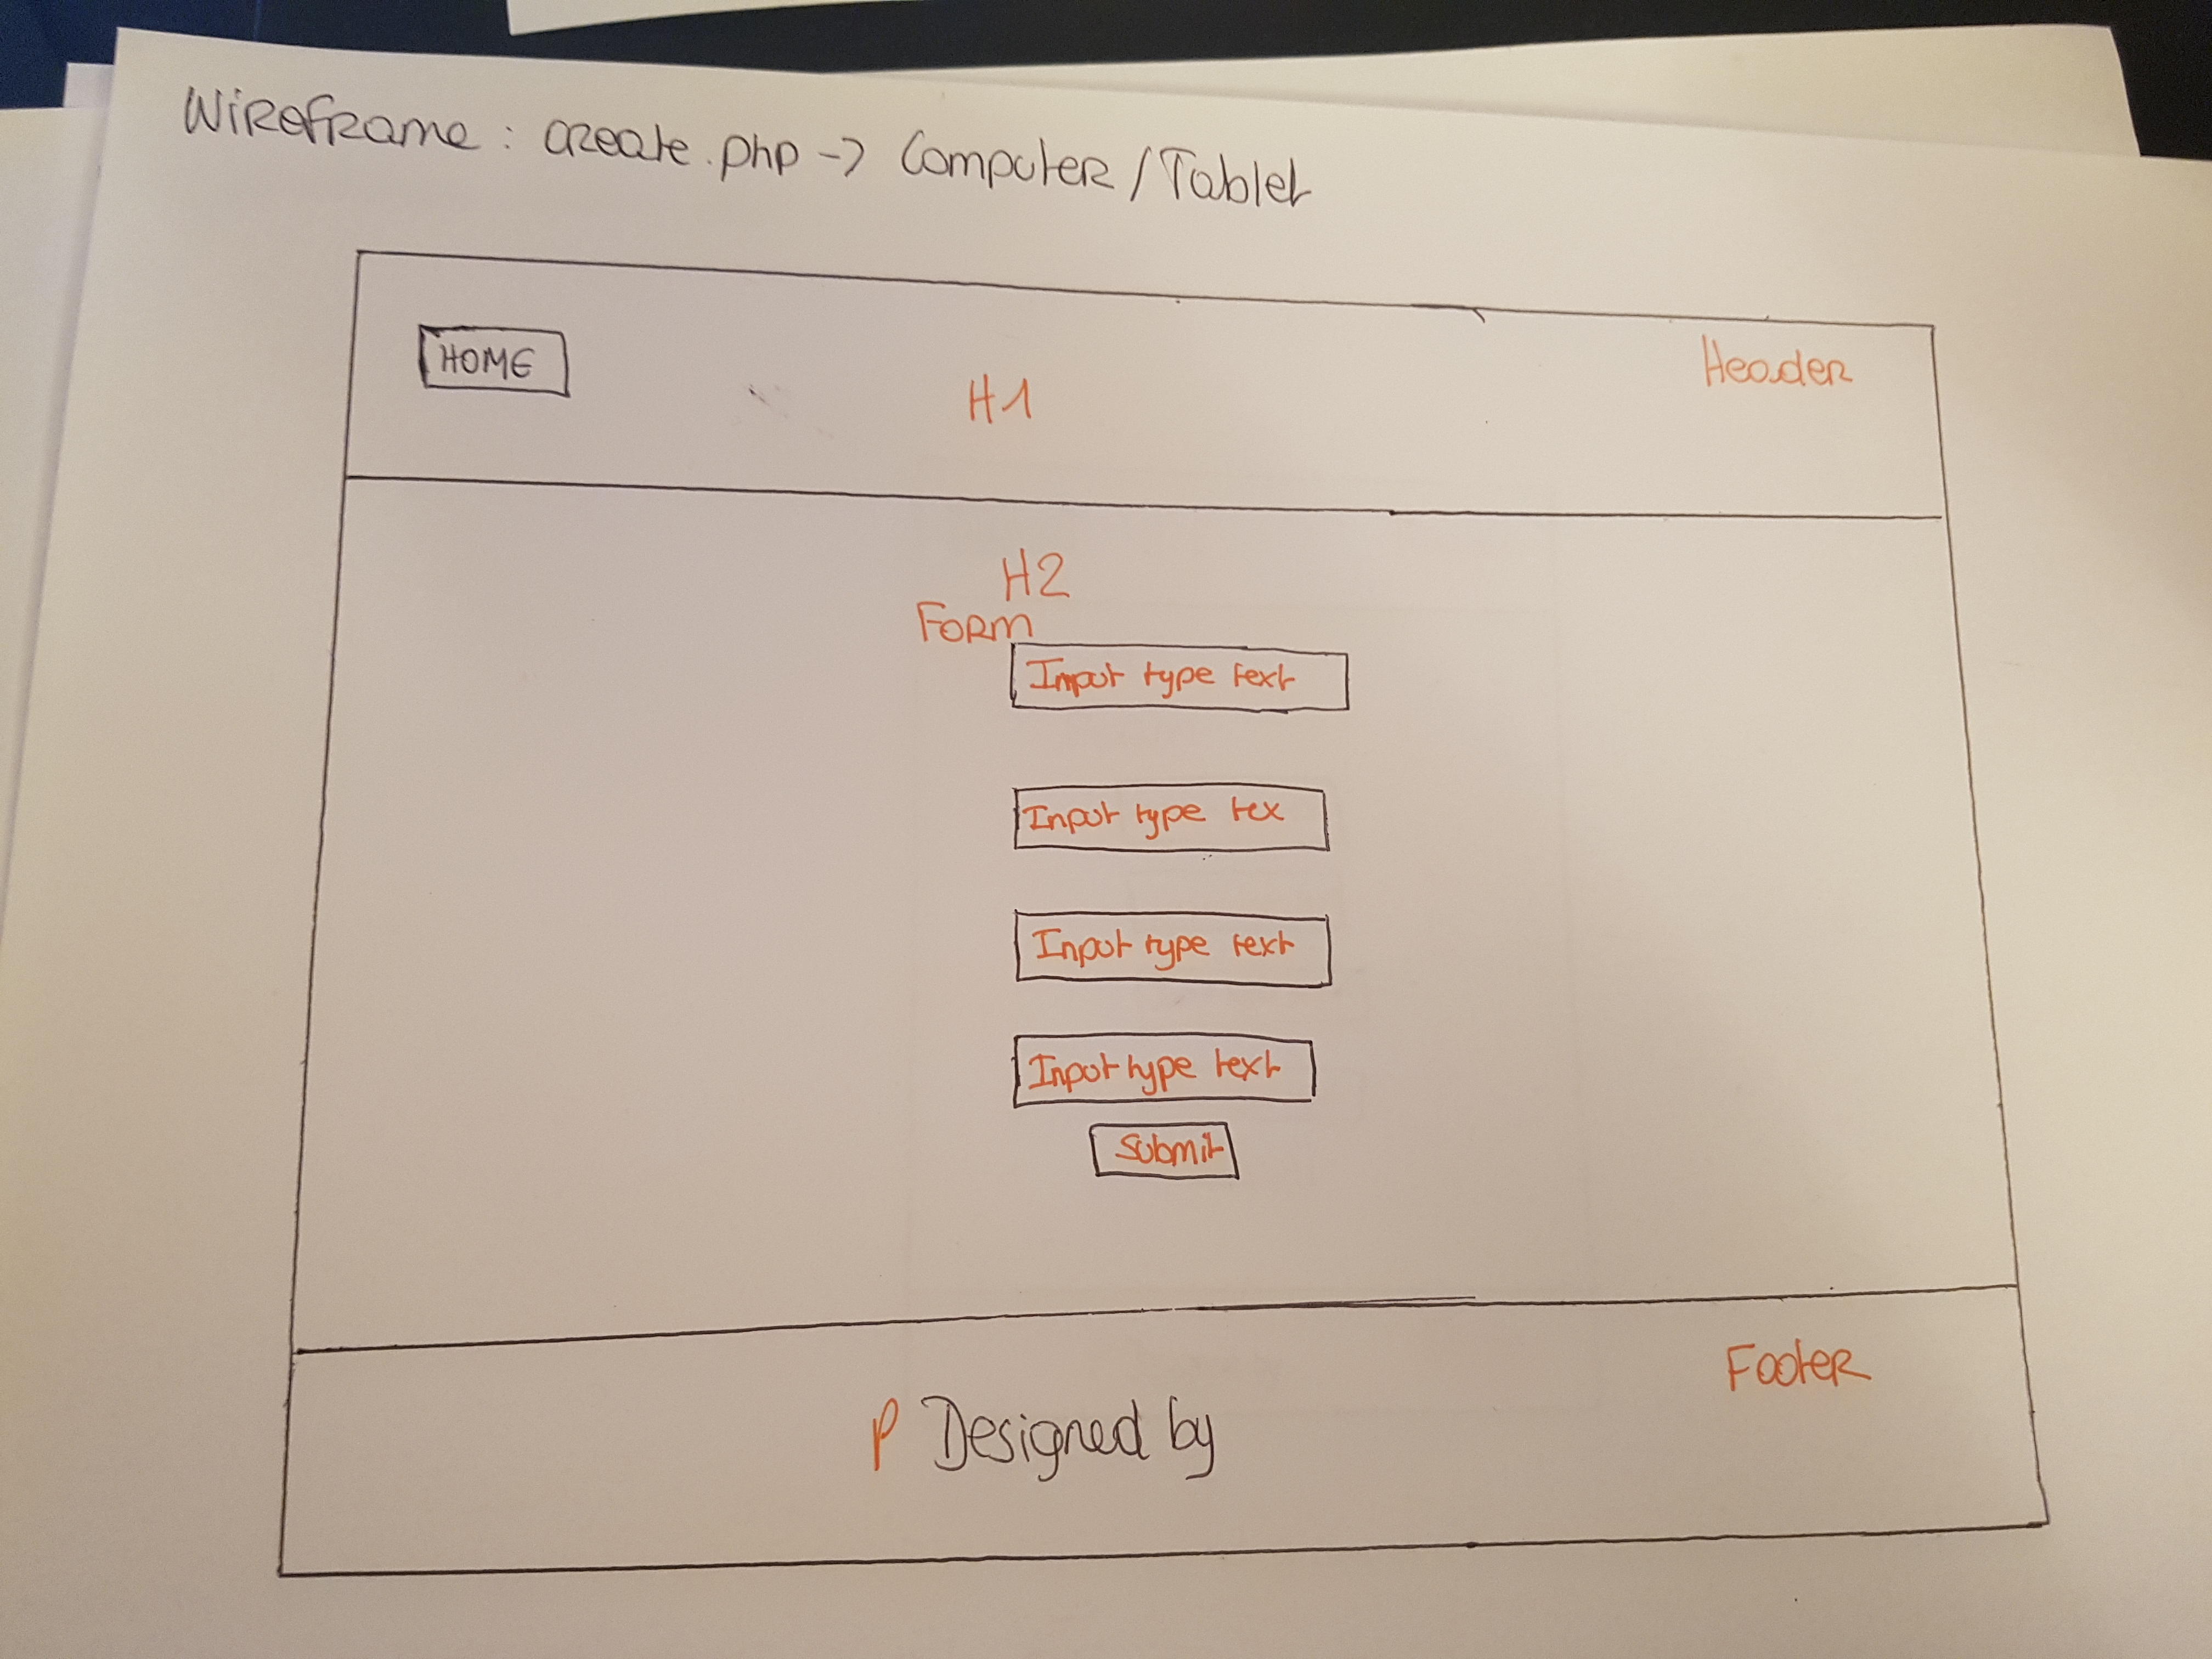 Wireframe : create.php -> Computer/Tablet
HOME
H1
Header
H2
Form
Input type text
Input type tex
Input type text
Input type text
Submit
Footer
P Designed by